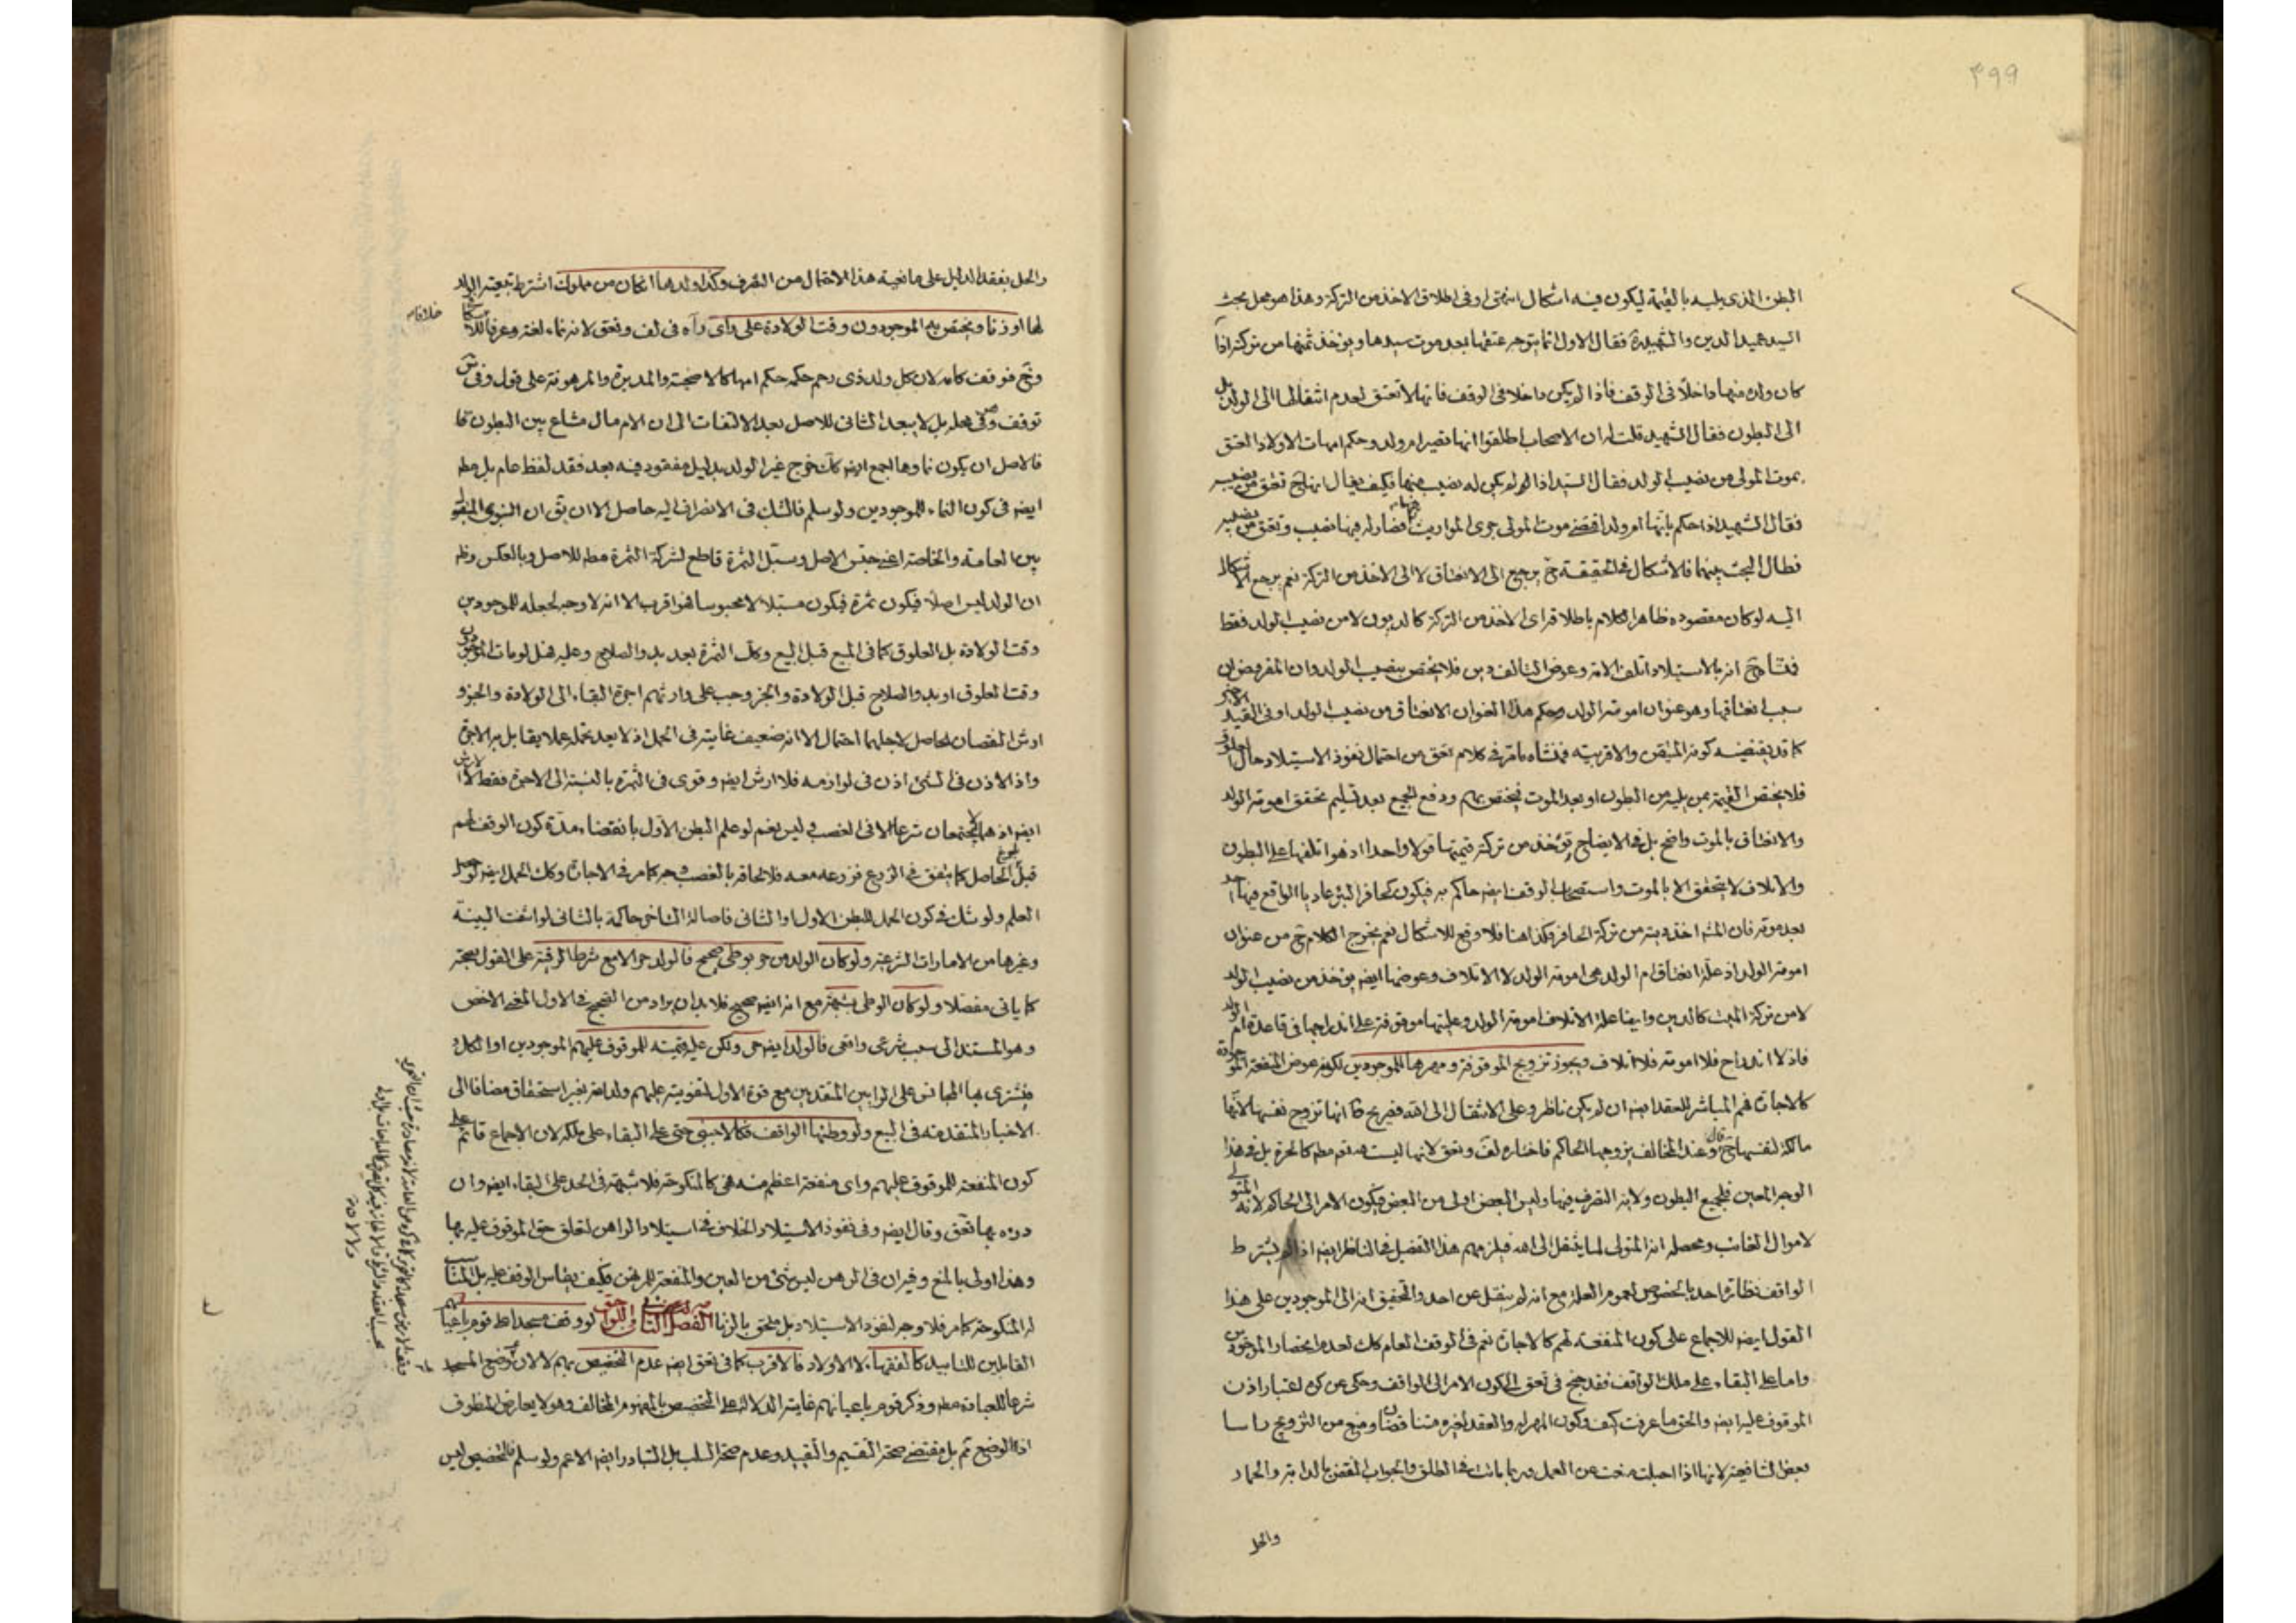 ۴۹۹
البطن الذى يليه بالقيمة ليكون فيه اشكال انتهى او فى اطلاق الاخذ من التركة وهذا هو محل بحث
السيد عميد الدين والشهيد فقال الاول انما يتوجه عتقها بعد موت سيدها ويؤخذ ثمنها من تركته اذا
كان ولده منها داخلا فى الوقف فاذا لم يكن داخلا فى الوقف فانها لا تعتق لعدم انتقالها الى الولد بل
الى البطون فقال الشهيد قلت له ان الاصحاب اطلقوا انها تصير ام ولد وحكم امهات الاولاد العتق
بموت المولى من نصيب الولد فقال السيد اذا لم يكن له نصيب منها فكيف يقال انها ح تعتق من نصيبه
فقال الشهيد اذا حكم بانها ام ولد اقتضى موت المولى جرى المواريث فصار له فيها نصيب وتعتق من نصيبه
فطال البحث بينهما فالاشكال فى الحقيقة ح يرجع الى الانعتاق لا الى الاخذ من التركة نعم يرجع الاشكال
اليه لو كان مقصوده ظاهر الكلام باطلاقه اى الاخذ من التركة كالديون لا من نصيب الولد فقط
فمنشاه ح انه بالاستيلاد اتلف الامة وعوض التالف دين فلا يختص بنصيب الولد وان المفروض ان
سبب انعتاقها وهو عنوان امومة الولد وحكم هذا العنوان الانعتاق من نصيب الولد او فى القيد الاخير
كما قد يقتضيه كونه المتيقن والاقربية فمنشاه ما مر فى كلام تعق من احتمال نفوذ الاستيلاد حال
فلا يختص القيمة بمن يليه من البطون او بعد الموت فيختص بهم ودفع الجميع بعد تسليم تحقق امومة الولد
والانعتاق بالموت واضح بل فى الايضاح تؤخذ من تركته قيمتها قولا واحدا اذ هو اتلفها على البطون
والاتلاف لا يتحقق الا بالموت واستصحاب الوقف ايضا حاكم به فيكون كحافر البئر عاديا الواقع فيها احد
بعد موته فان المشهور اخذ ديته من تركة الحافر فكذا هنا فلا وقع للاشكال نعم يخرج الكلام ح من عنوان
امومة الولد اذ علة انعتاق ام الولد هى امومة الولد لا الاتلاف وعوضها ايضا يؤخذ من نصيب الولد
لا من تركة الميت كالدين وايضا علة الاتلاف امومة الولد وعليتها موقوفة على اندراجها فى قاعدة ام الولد
فاذ لا اندراج فلا امومة فلا اتلاف ويجوز تزويج الموقوفة ومهرها للموجودين لكونه عوض المنفعة الموجودة
كالاجارة فهم المباشر للعقد ايضا ان لم يكن ناظر وعلى الانتقال الى الله فصريح انها تزوج نفسها لانها
مالكة لنفسها ح وعند المخالف يزوجها الحاكم فاختاره لف وتعق لانها ليست كالحرة بل فى هذا
الوجه المعين فلجميع البطون ولاية التصرف فيها وليس البعض اولى من البعض فيكون الامر الى الحاكم لانه المتولى
لاموال الغائب ومحصله انه المتولى لما ينتقل الى الله فيلزمهم هذا التفصيل فى الناظر ايضا اذا لم يشترط
الواقف نظارة احد بالخصوص لعموم العلة مع انه لم ينقل عن احد والتحقيق انه الى الموجودين على هذا
القول ايضا للاجماع على كون المنفعة لهم كالاجارة نعم فى الوقف العام كلك لعدم انحصار الموجودين
واما على البقاء على ملك الواقف فقد جنح فى تعق الى كون الامر الى الواقف وحكى عن كره اعتبار اذن
الموقوف عليه ايضا والحق ما عرفت كيف وكون المهر له والعقد لغيره متناقضان ومنع من التزويج راسا
بعض الشافعية لانها اذا احبلت منعت عن العمل وربما ماتت فى الطلق والجواب النقض بالدابة والحمار
والحل
والحل بفقد الدليل على مانعية هذا الاحتمال من التصرف وكذا ولدها ان كان من مملوك اشترط تبعية الولد
لها او زنا ويختص به الموجودون وقت الولادة على راى رآه فى لف وتعق لانه نماء لغة وعرفا
خلافا
وح فوقف كامه لان كل ولد ذى رحم حكمه حكم امها كالاضحية والمدبرة والمرهونة على قول وفى
توقف وفى محله بل لا يبعد الثانى للاصل بعد الالتفات الى ان الام مال مشاع بين البطون
فالاصل ان يكون نماوها لجميع ايضا خرج غير الولد بدليل مفقود فيه بعد فقد لفظ عام بل مط
ايضا فى كون النماء للموجودين ولو سلم فالشك فى الانصراف اليه حاصل الا ان يق ان النبوى المنقول
بين العامة والخاصة اعنى حبس الاصل وسبل الثمرة قاطع لشركة الثمرة مط للاصل وبالعكس وظ
ان الولد ليس اصلا فيكون ثمرة فيكون مسبلا لا محبوسا فهو اقرب الا انه لا وجه لجعله للموجودين
وقت الولادة بل العلوق كما فى المبيع قبل البيع وكك الثمرة بعد بدو الصلاح وعليه فهل لو مات الموجودون
وقت العلوق او بدو الصلاح قبل الولادة والجز وجب على وارثهم اجرة البقاء الى الولادة والجز و
ارش النقصان الحاصل لاجلهما احتمال الا انه ضعيف غايته فى الحمل اذ لا يعد تحمله عملا يقابل به الاجرة
واذ الاذن فى الشئ اذن فى لوازمه فلا ارش ايضا وقوى فى الثمرة بالنسبة الى الاجرة فقط لا الارش
ايضا اذ هما لا يجتمعان شرعا الا فى الغصب وليس نعم لو علم البطن الاول بانقضاء مدة كون الوقف لهم
قبل بلوغ الحاصل كما يتفق فى الزرع فزرعه معه فلالحاقه بالغصب وجه كما مر فى الاجارة وكك الحمل ايضا لو حصل
العلم ولو شك فى كون الحمل للبطن الاول او الثانى فاصالة التاخر حاكمة بالثانى لو انتفت البينة
وغيرها من الامارات الشرعية ولو كان الولد من حر بوطى صحيح فالولد حر الا مع شرط الرقية على القول بصحته
كما ياتى مفصلا ولو كان الوطى بشبهة مع انه ايضا صحيح فلا بد ان يراد من الصحيح فى الاول المعنى الاخص
وهو المستند الى سبب شرعى واقعى فالولد ايضا حر ولكن عليه قيمته للموقوف عليهم الموجودين او الكل و
يشترى بها المجانس على الرايين المتقدمين مع قوة الاول لتفويته عليهم ولد امة بغير استحقاق مضافا الى
الاخبار المتقدمة فى البيع ولو وطئها الواقف فكالاجنبى حتى على البقاء على ملكه لان الاجماع قائم على
كون المنفعة للموقوف عليهم واى منفعة اعظم منه هى كالمنكوحة فلا شبهة فى الحد على البقاء ايضا وان
درءه بها تعق وقال ايضا وفى نفوذ الاستيلاد الخلاف فى استيلاد الراهن لتعلق حق الموقوف عليه بها
وهذا اولى بالمنع وفيه ان فى الرهن ليس شئ من العين والمنفعة للمرتهن فكيف يقاس الوقف عليه بل المناسب
له المنكوحة كما مر فلا وجه لنفوذ الاستيلاد بل ملحق بالزنا الفصل الثانى فى اللواحق لو وقف مسجدا على قوم باعيانهم
القابلين للتابيد كالفقهاء لا الاولاد فالاقرب كما فى تعق ايضا عدم التخصيص بهم لا لان وضع المسجد
شرعا للعبادة مط وذكر قوم باعيانهم غايته الدلالة على التخصيص بالمفهوم المخالف وهو لا يعارض المنطوق
اذ الوضع ثم بل مقتضى صحة التقسيم والتقييد وعدم صحة السلب بل التبادر ايضا الاعم ولو سلم فالتخصيص ليس